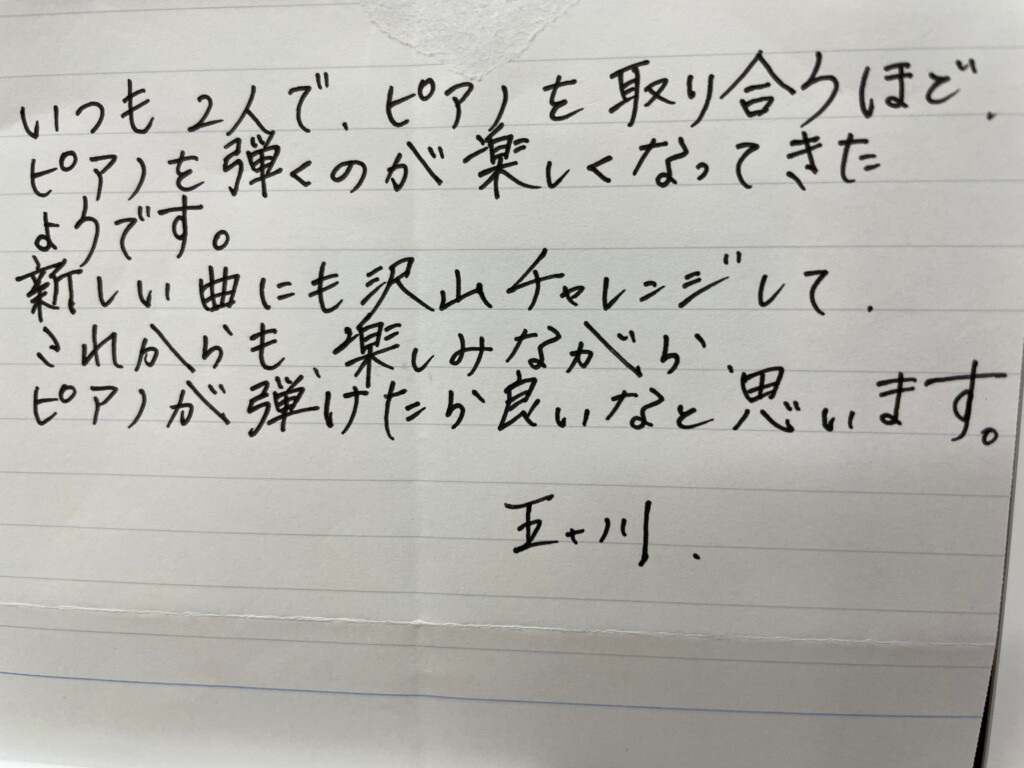 いつも2人で、ピアノを取り合うほど、
ピアノを弾くのが楽しくなってきた
ようです。
新しい曲にも沢山チャレンジして、
これからも、楽しみながら、
ピアノが弾けたら良いなと思います。
五十川.